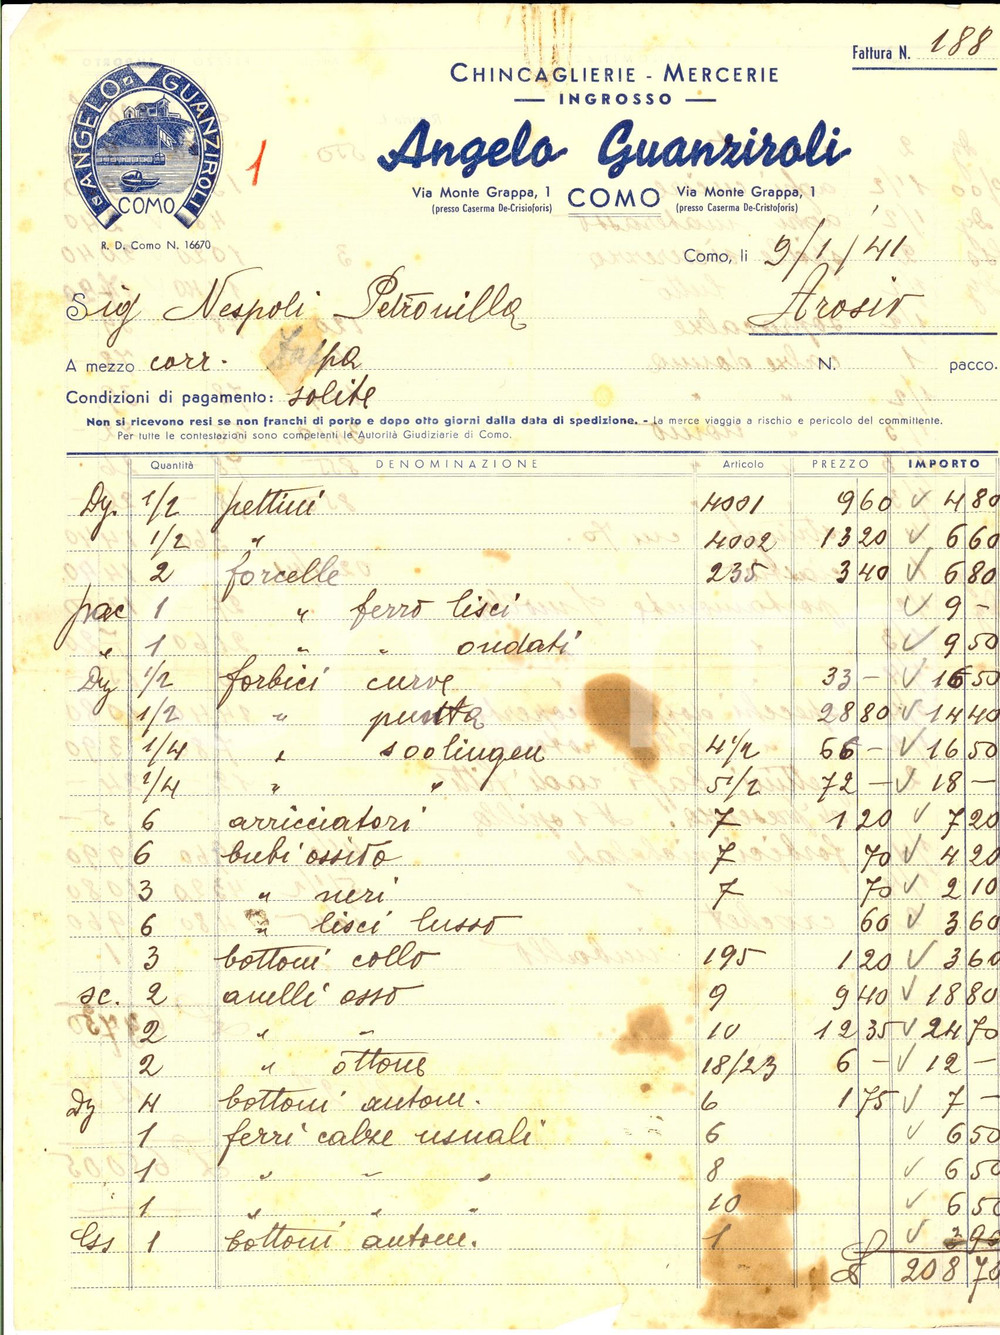 Fattura N. 188
CHINCAGLIERIE - MERCERIE
INGROSSO
Angelo Guanziroli
Via Monte Grappa, 1 COMO Via Monte Grappa, 1
(presso Caserma De-Crisioforis) (presso Caserma De-Cristoforis)
ANGELO GUANZIROLI
COMO
R. D. Como N. 16670
1
Como, li 9/1/41
Sig Nespoli Petronilla Arosio
A mezzo corr. N. pacco.
Condizioni di pagamento: solite
Non si ricevono resi se non franchi di porto e dopo otto giorni dalla data di spedizione. - La merce viaggia a rischio e pericolo del committente.
Per tutte le contestazioni sono competenti le Autorità Giudiziarie di Como.
Quantità DENOMINAZIONE Articolo PREZZO IMPORTO
Dz. 1/2 pettini 4001 9 60 ✓ 4 80
1/2 " 4002 13 20 ✓ 6 60
2 forcelle 235 3 40 ✓ 6 80
pac 1 " ferro lisci ✓ 9 -
" 1 " " ondati ✓ 9 50
Dz 1/2 forbici curve 33 - ✓ 16 50
1/2 " punta 28 80 ✓ 14 40
1/4 " soolingen 4 1/2 66 - ✓ 16 50
1/4 " " 5 1/2 72 - ✓ 18 -
6 arricciatori 7 1 20 ✓ 7 20
6 bubi ossido 7 70 ✓ 4 20
3 " neri 7 70 ✓ 2 10
6 " lisci lusso 60 ✓ 3 60
3 bottoni collo 195 1 20 ✓ 3 60
sc. 2 anelli osso 9 9 40 ✓ 18 80
2 " " 10 12 35 ✓ 24 70
2 " ottone 18/23 6 - ✓ 12 -
Dz 4 bottoni autom. 6 1 75 ✓ 7 -
1 ferri calze usuali 6 ✓ 6 50
1 " " " 8 ✓ 6 50
1 " " " 10 ✓ 6 50
Gss 1 bottoni autom. 1 ✓
£ 208 70